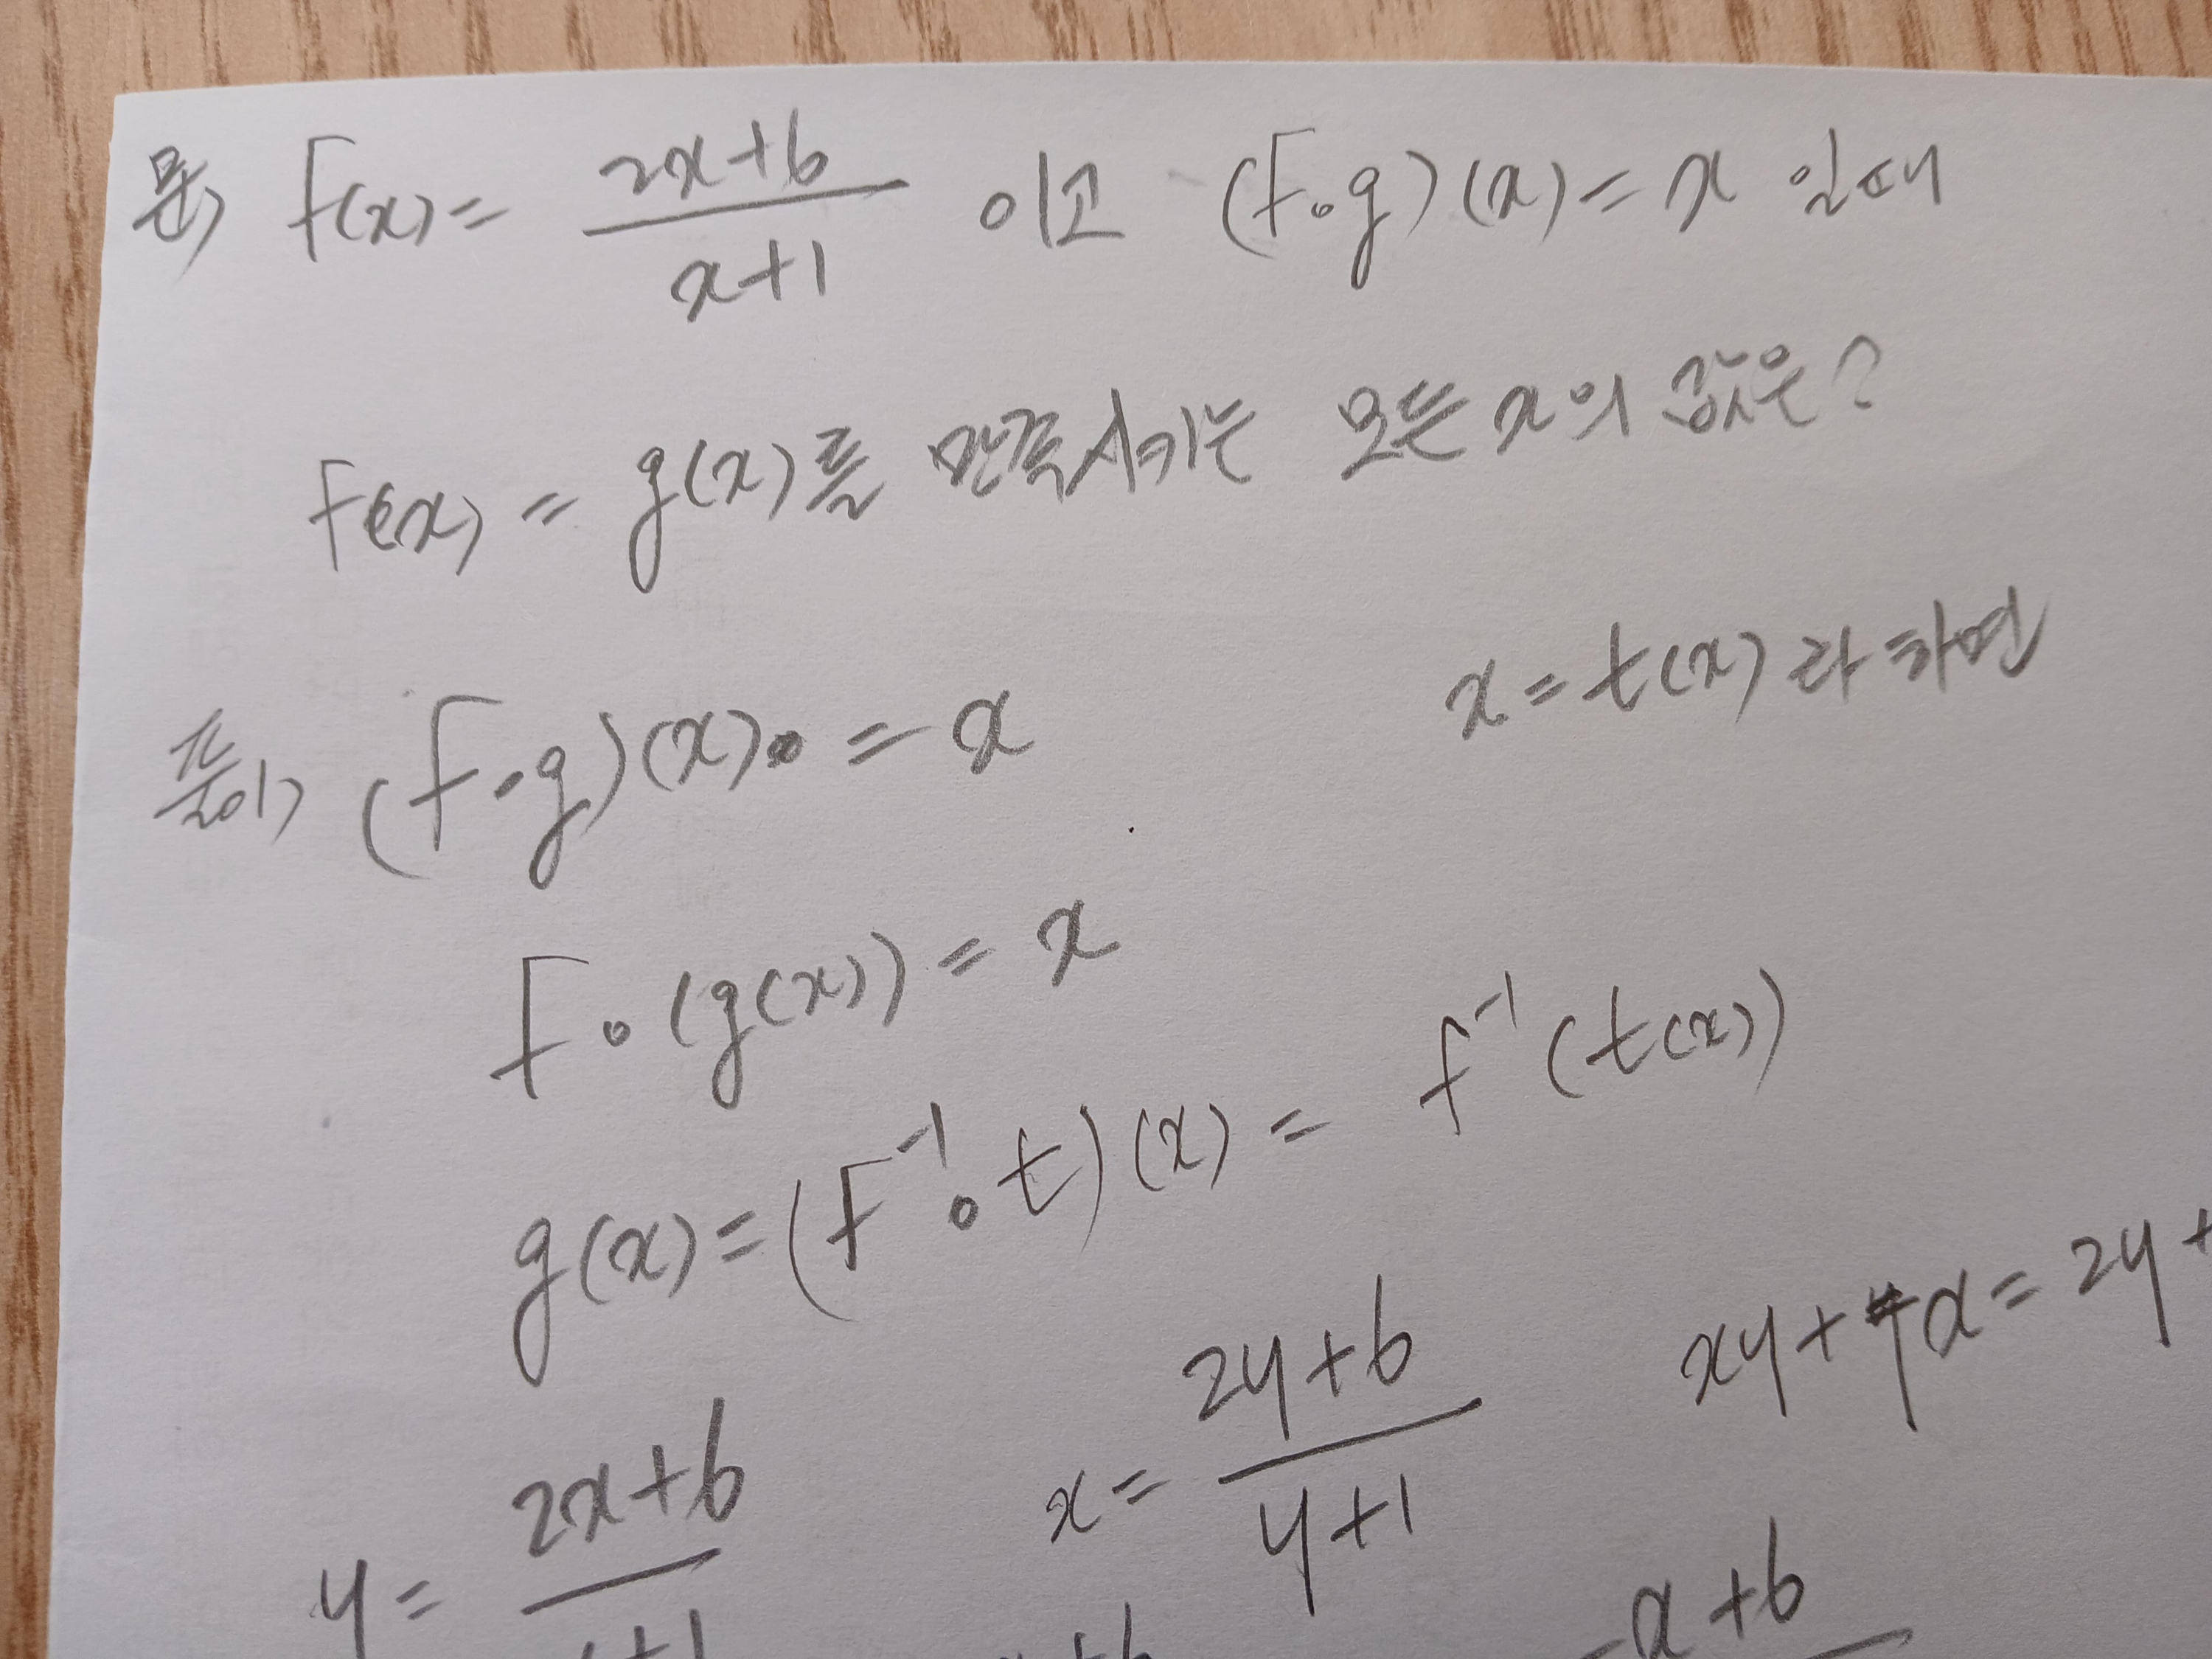 문) f(x) = (2x+6)/(x+1) 이고 (f∘g)(x) = x 일때
f(x) = g(x)를 만족시키는 모든 x의 값은?
x = t(x) 라 하면
풀이) (f∘g)(x) = x
f∘(g(x)) = x
g(x) = (f⁻¹∘t)(x) = f⁻¹(t(x))
y = (2x+6)/ +1 x = (2y+6)/(y+1) xy + x = 2y +
+6 -x+6